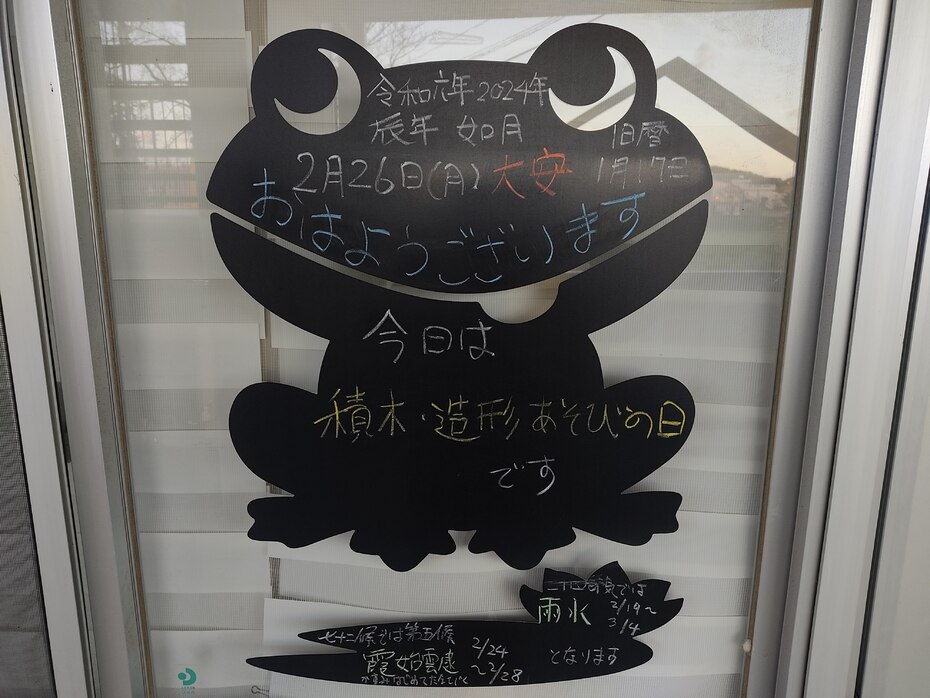 令和六年 2024年
辰年 如月
旧暦
2月26日(月) 大安 1月17日
おはようございます
今日は
積木・造形あそびの日
です
二十四節気では
雨水 2/19〜
3/4
七十二候では第五候
霞始靆 2/24
〜2/28
かすみはじめてたなびく
となります